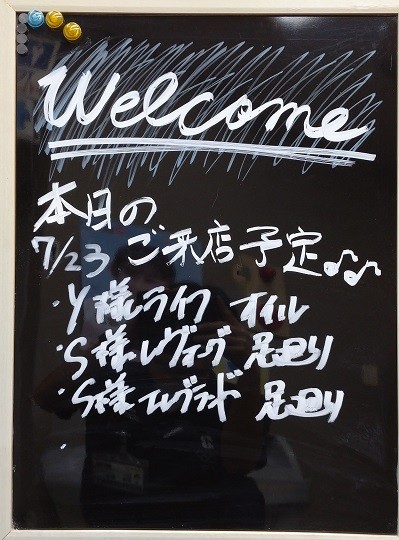 Welcome
本日の
7/23 ご来店予定♪♪
・Y様 ライフ オイル
・S様 レヴォーグ 足廻り
・S様 エルグランド 足廻り